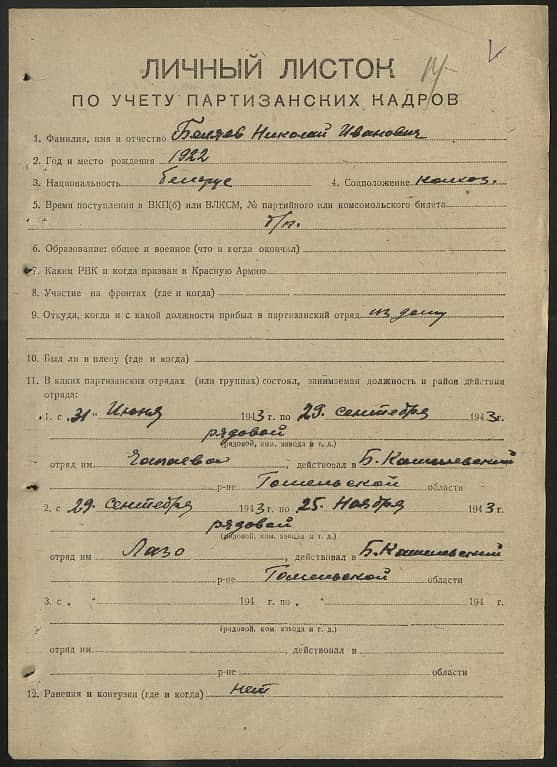 ЛИЧНЫЙ ЛИСТОК
ПО УЧЕТУ ПАРТИЗАНСКИХ КАДРОВ
1. Фамилия, имя и отчество Беляев Николай Иванович
2. Год и место рождения 1922
3. Национальность белорус 4. Соцположение колхоз.
5. Время поступления в ВКП(б) или ВЛКСМ, № партийного или комсомольского билета
б/п.
6. Образование: общее и военное (что и когда окончил)
7. Каким РВК и когда призван в Красную Армию
8. Участие на фронтах (где и когда)
9. Откуда, когда и с какой должности прибыл в партизанский отряд из дому
10. Был ли в плену (где и когда)
11. В каких партизанских отрядах (или группах) состоял, занимаемая должность и район действия
отряда:
1. с „31" Июня 1943 г. по 29. сентября 1943 г.
рядовой
(рядовой, ком. взвода и т. д.)
отряд им. Чапаева, действовал в Б. Кошелевский
р-не Гомельской области
2. с 29. сентября 1943 г. по 25. Ноября 1943 г.
рядовой
(рядовой, ком. взвода и т. д.)
отряд им Лазо, действовал в Б. Кошелевский
р-не Гомельской области
3. с „ " 194 г. по „ " 194 г.
(рядовой, ком. взвода и т. д.)
отряд им., действовал в
р-не области
12. Ранения и контузии (где и когда) нет